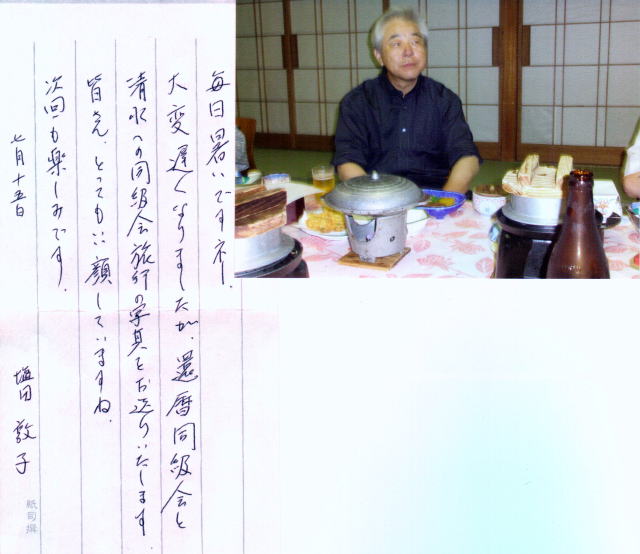 毎日暑いですネー
大変遅くなりましたが、還暦同級会と
清水への同級会旅行の写真をお送りいたします
皆さん、とってもいい顔していますね。
次回も楽しみです。
七月十五日
塩田 敦子